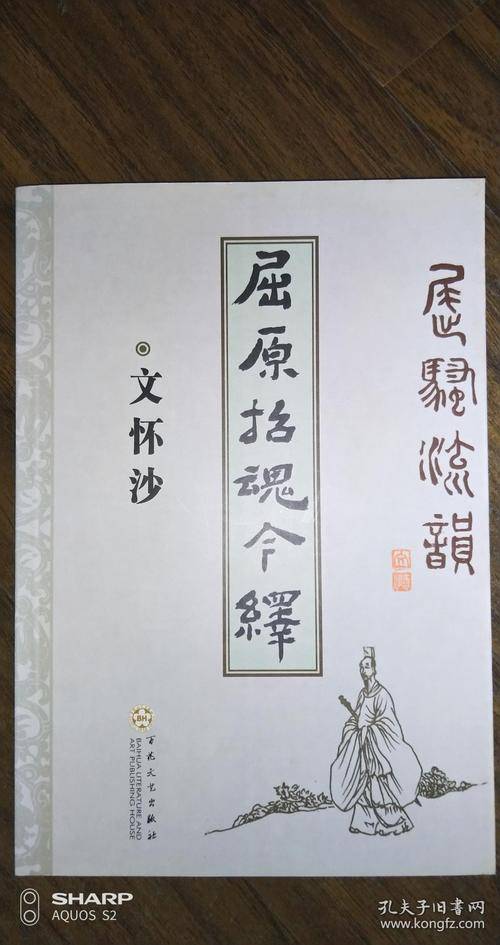 屈骚流韻
屈原招魂今繹
文怀沙
百花文艺出版社
BAIHUA LITERATURE AND
ART PUBLISHING HOUSE
BH
SHARP
AQUOS S2
孔夫子旧书网
www.kongfz.com